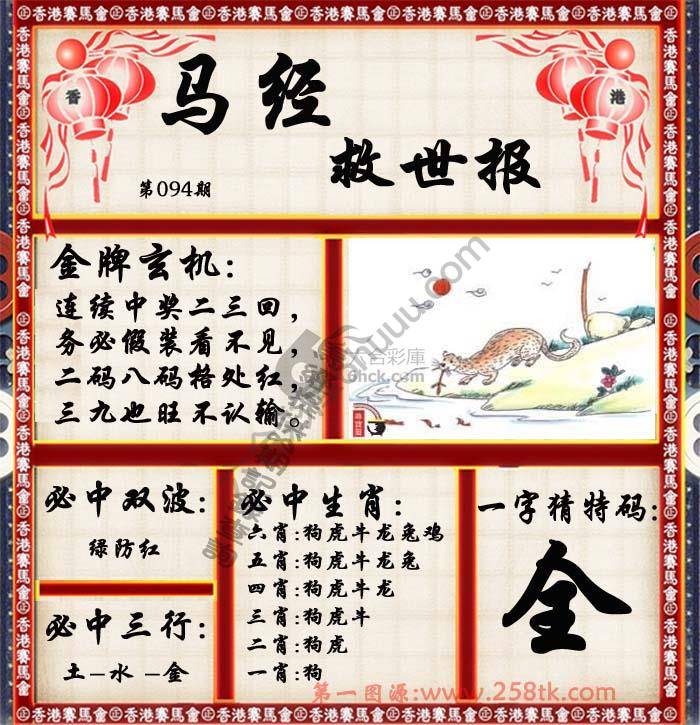 香港賽馬會
香 港
马经
救世报
第094期
金牌玄机:
连续中奖二三回，
务必假装看不见，
二码八码格处红，
三九也旺不认输。
六合彩庫
6hck.com
必中双波:
绿防红
必中三行:
土-水-金
必中生肖:
六肖:狗虎牛龙兔鸡
五肖:狗虎牛龙兔
四肖:狗虎牛龙
三肖:狗虎牛
二肖:狗虎
一肖:狗
一字猜特码:
全
第一图源:www.258tk.com